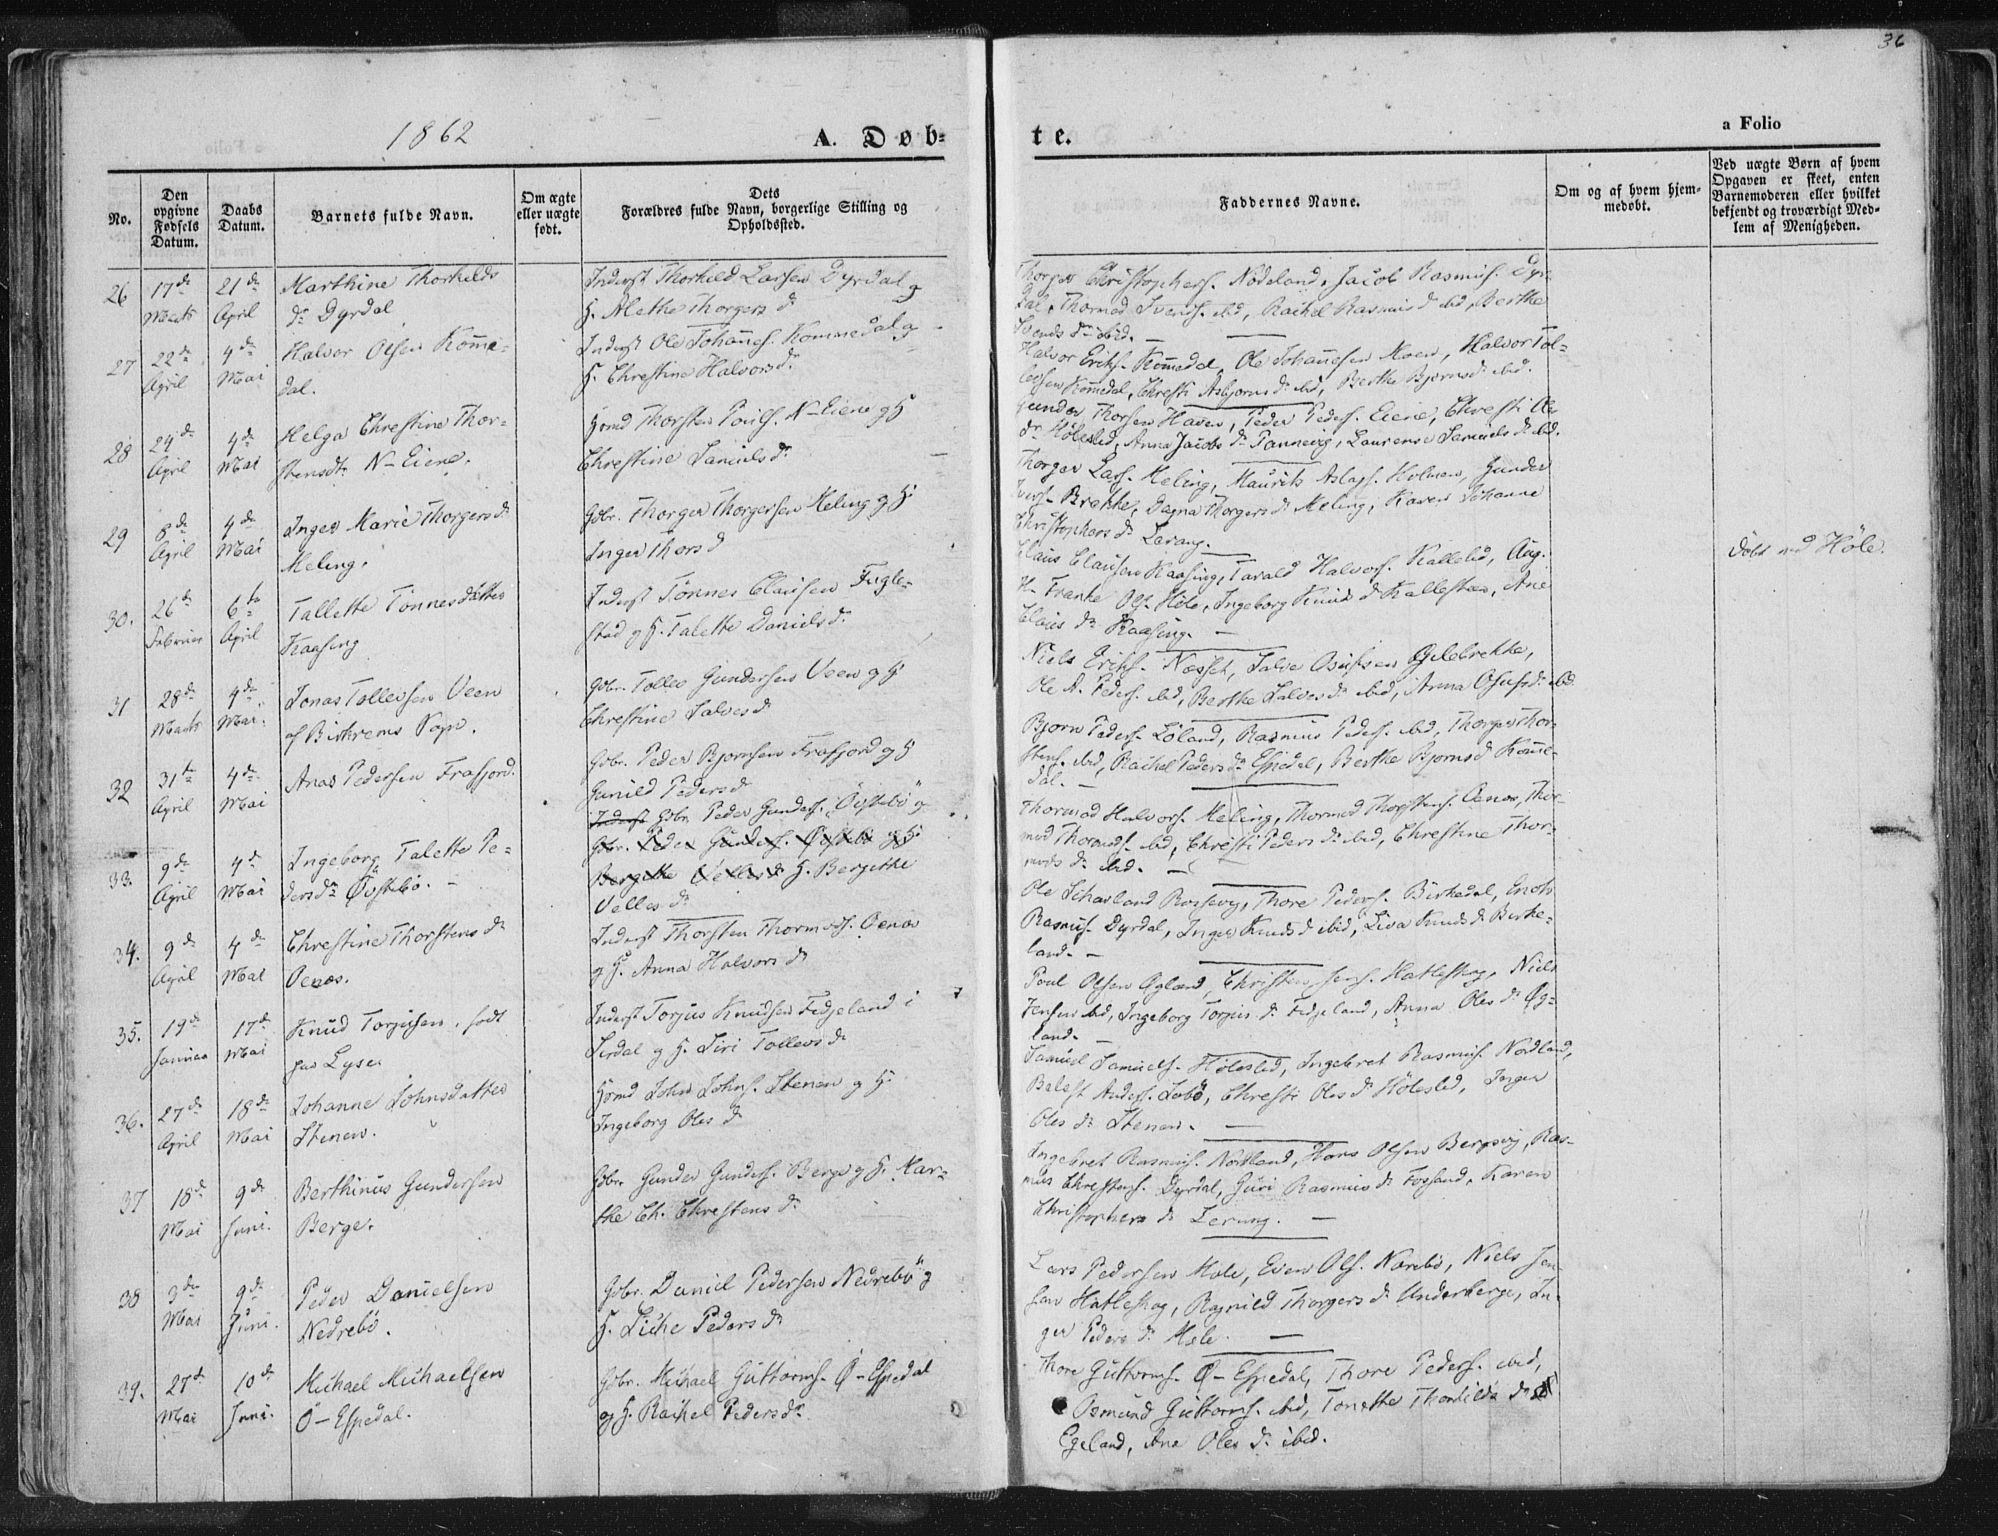 36
1862
A. Døb-
te.
a Folio
No.
Den
opgivne
Fødsels
Datum.
Daabs
Datum.
Barnets fulde Navn.
Om ægte
eller uægte
født.
Dets
Forældres fulde Navn, borgerlige Stilling og
Opholdssted.
Faddernes Navne.
Om og af hvem hjem-
medøbt.
Ved uægte Børn af hvem
Opgaven er skeet, enten
Barnemoderen eller hvilket
bekjendt og troværdigt Med-
lem af Menigheden.
26
17de
Marts
21de
April
Marthine Thorkilds
dr Dyrdal
Inderst Thorkild Larsen Dyrdal g
H. Methe Thorgers dr
Thorger Christophers. Nødeland, Jacob Rasmus. Dyr-
dal, Thormod Svends. ibid, Rachel Rasmus dr ibid, Berthe
Svends dr ibid.
27
22de
April
4de
Mai
Halvor Olsen Komme-
dal.
Inderst Ole Johans. Kommedal g
H. Christine Halvors dr
Halvor Eriks. Komedal, Ole Johanesen Moen, Halvor Tol-
lefsen Komedal, Christi Asbjorns dr ibid, Berthe Bjorns dr ibid.
28
24de
April
4de
Mai
Helga Christine Thor-
stensdr N-Eiene.
Hsmd Thorsten Pouls. N-Eiene g H
Christine Samuels dr
Gunder Thorsen Haven, Peder Peders. Eiene, Christi Ole
dr Høleslid, Anna Jacobs dr Tannevig, Laurense Samuels dr ibid.
29
8de
April
4de
Mai
Inger Marie Thorgers dr
Meling.
Gbr. Thorger Thorgersen Meling g H.
Inger Thors d
Thorger Lars. Meling, Maurits Aslags. Holmen, Gunder
Ivers. Brekke, Dagna Thorgers dr Meling, Karen Johanne
Christophers dr Lerang.
30.
26de
Februar
6te
April
Tallette Tønnesdatter
Kaasing
Inderst Tønnes Clausen Fugle-
stad g H. Talette Daniels dr
Claus Clausen Kaasing, Tarald Halvors. Kallelid, Aug.
H. Franke Ols. Høle, Ingeborg Knud dr Kallestæn, Ane
Claus dr Kaasing.
Døbt ved Høle.
31
28de
Marts
4de
Mai.
Jonas Tollevsen Veen
af Birkrems Sogn.
Gbr. Tollev Gundersen Veen g H
Christine Salves d
Niels Eriks. Næsset, Salve Osufsen Gjilebrekke,
Ole A. Peders. ibid, Berthe Salves dr ibid, Anna Osufs dr ibid.
32
31te
April
4de
Mai
Anas Pedersen Frafjord.
Gbr. Peder Bjornsen Frafjord g H
Gunild Peders d
Bjorn Peders. Løland, Rasmus Peders. ibid, Thorger Thor-
stens. ibid, Rachel Peders dr Espedal, Berthe Bjorns d Kome-
dal.
33.
9de
April
4de
Mai
Ingeborg Talette Pe-
ders dr Øvstebø.
Inderst Gbr. Peder Gunders. Øvstebø g
Gbr. Peder Gunders. Øvstebø g H
Bergithe Velles d H. Bergithe
Velles dr
Thormod Halvors. Meling, Thormod Thorstens. Oenæs, Thor-
mod Thormods. ibid, Christi Peders dr ibid, Christine Thor-
mods dr ibid.
34.
9de
April
4de
Mai
Christine Thorstens dr
Oenæs.
Inderst Thorsten Thormods. Oenæs
g H. Anna Halvors dr
Ole Rossevig, Thore Peders. Birkedal, Enok
Rasmus. Dyrdal, Inger Knuds d ibid, Liva Knuds dr Birke-
land.
35.
19de
Januar
17de
Mai
Knud Torjusen. født
paa Lyse
Inderst Torjus Knudsen Fedjeland i
Sirdal g H. Siri Tollevs dr
Poul Olsen Ogland, Christen Jens. Hatleskog, Niels
Jensen ibid, Ingeborg Torjus dr Fedjeland, Anna Oles dr Og-
land.
36.
27de
April
18de
Mai
Johanne Johnsdatter
Stenen.
Hsmd John Johns. Stenen g H.
Ingeborg Oles d
Samuel Samuels. Høleslid, Ingebret Rasmus. Nordland,
Anders. Lebø, Christi Oles dr Høleslid, Inger
Oles dr Stenen.
37
18de
Mai
9de
Juni.
Berthinus Gundersen
Berge.
Gbr. Gunder Gunders. Berge g H. Mar-
the Ch. Christens dr
Ingebret Rasmus. Nordland, Hans Olsen Bergevig, Ras-
mus Christens. Dyrdal, Guri Rasmus dr Fossand, Karen
Christophers dr Lerang.
38
3de
Mai
9de
Juni.
Peder Danielsen
Nedrebø.
Gbr. Daniel Pedersen Nedrebø g
H. Peders dr
Lars Pedersen Mæle, Even Ols. Nærebø, Niels Jen-
sen Hatleskog, Ragnild Thorgers dr Underberge, In-
ger Peders dr Mæle.
39.
27de
Mai
10de
Juni.
Michael Michaelsen
Ø-Espedal.
Gbr. Michael Guttorms. Ø-Espedal
g H. Rachel Peders dr
Thore Guttorms. Ø-Espedal, Thore Peders. ibid,
Osmund Guttorms. ibid, Tonette Thorkilds dr
Egeland, Ane Oles dr ibid.